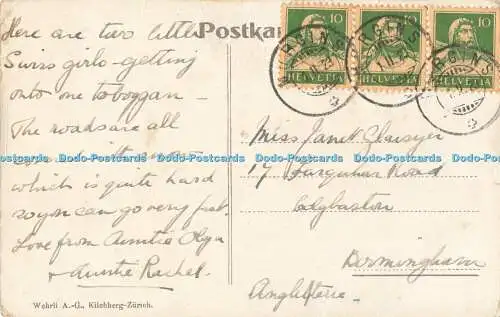 Postkar
Here are two little
Swiss girls - getting
onto one toboggan -
The roads are all
which is quite hard
so you can go very fast.
Love from Auntie Olga
+ Auntie Rachel.
Wehrli A.-G., Kilchberg-Zürich.
10 10 10
HELVETIA HELVETIA HELVETIA
MORGINS MORGINS MORGINS
Miss Janet
17 Farquhar Road
Edgbaston
Birmingham
Angleterre.
Dodo-Postcards Dodo-Postcards Dodo-Postcards Dodo-Postcards Dodo-Postcards